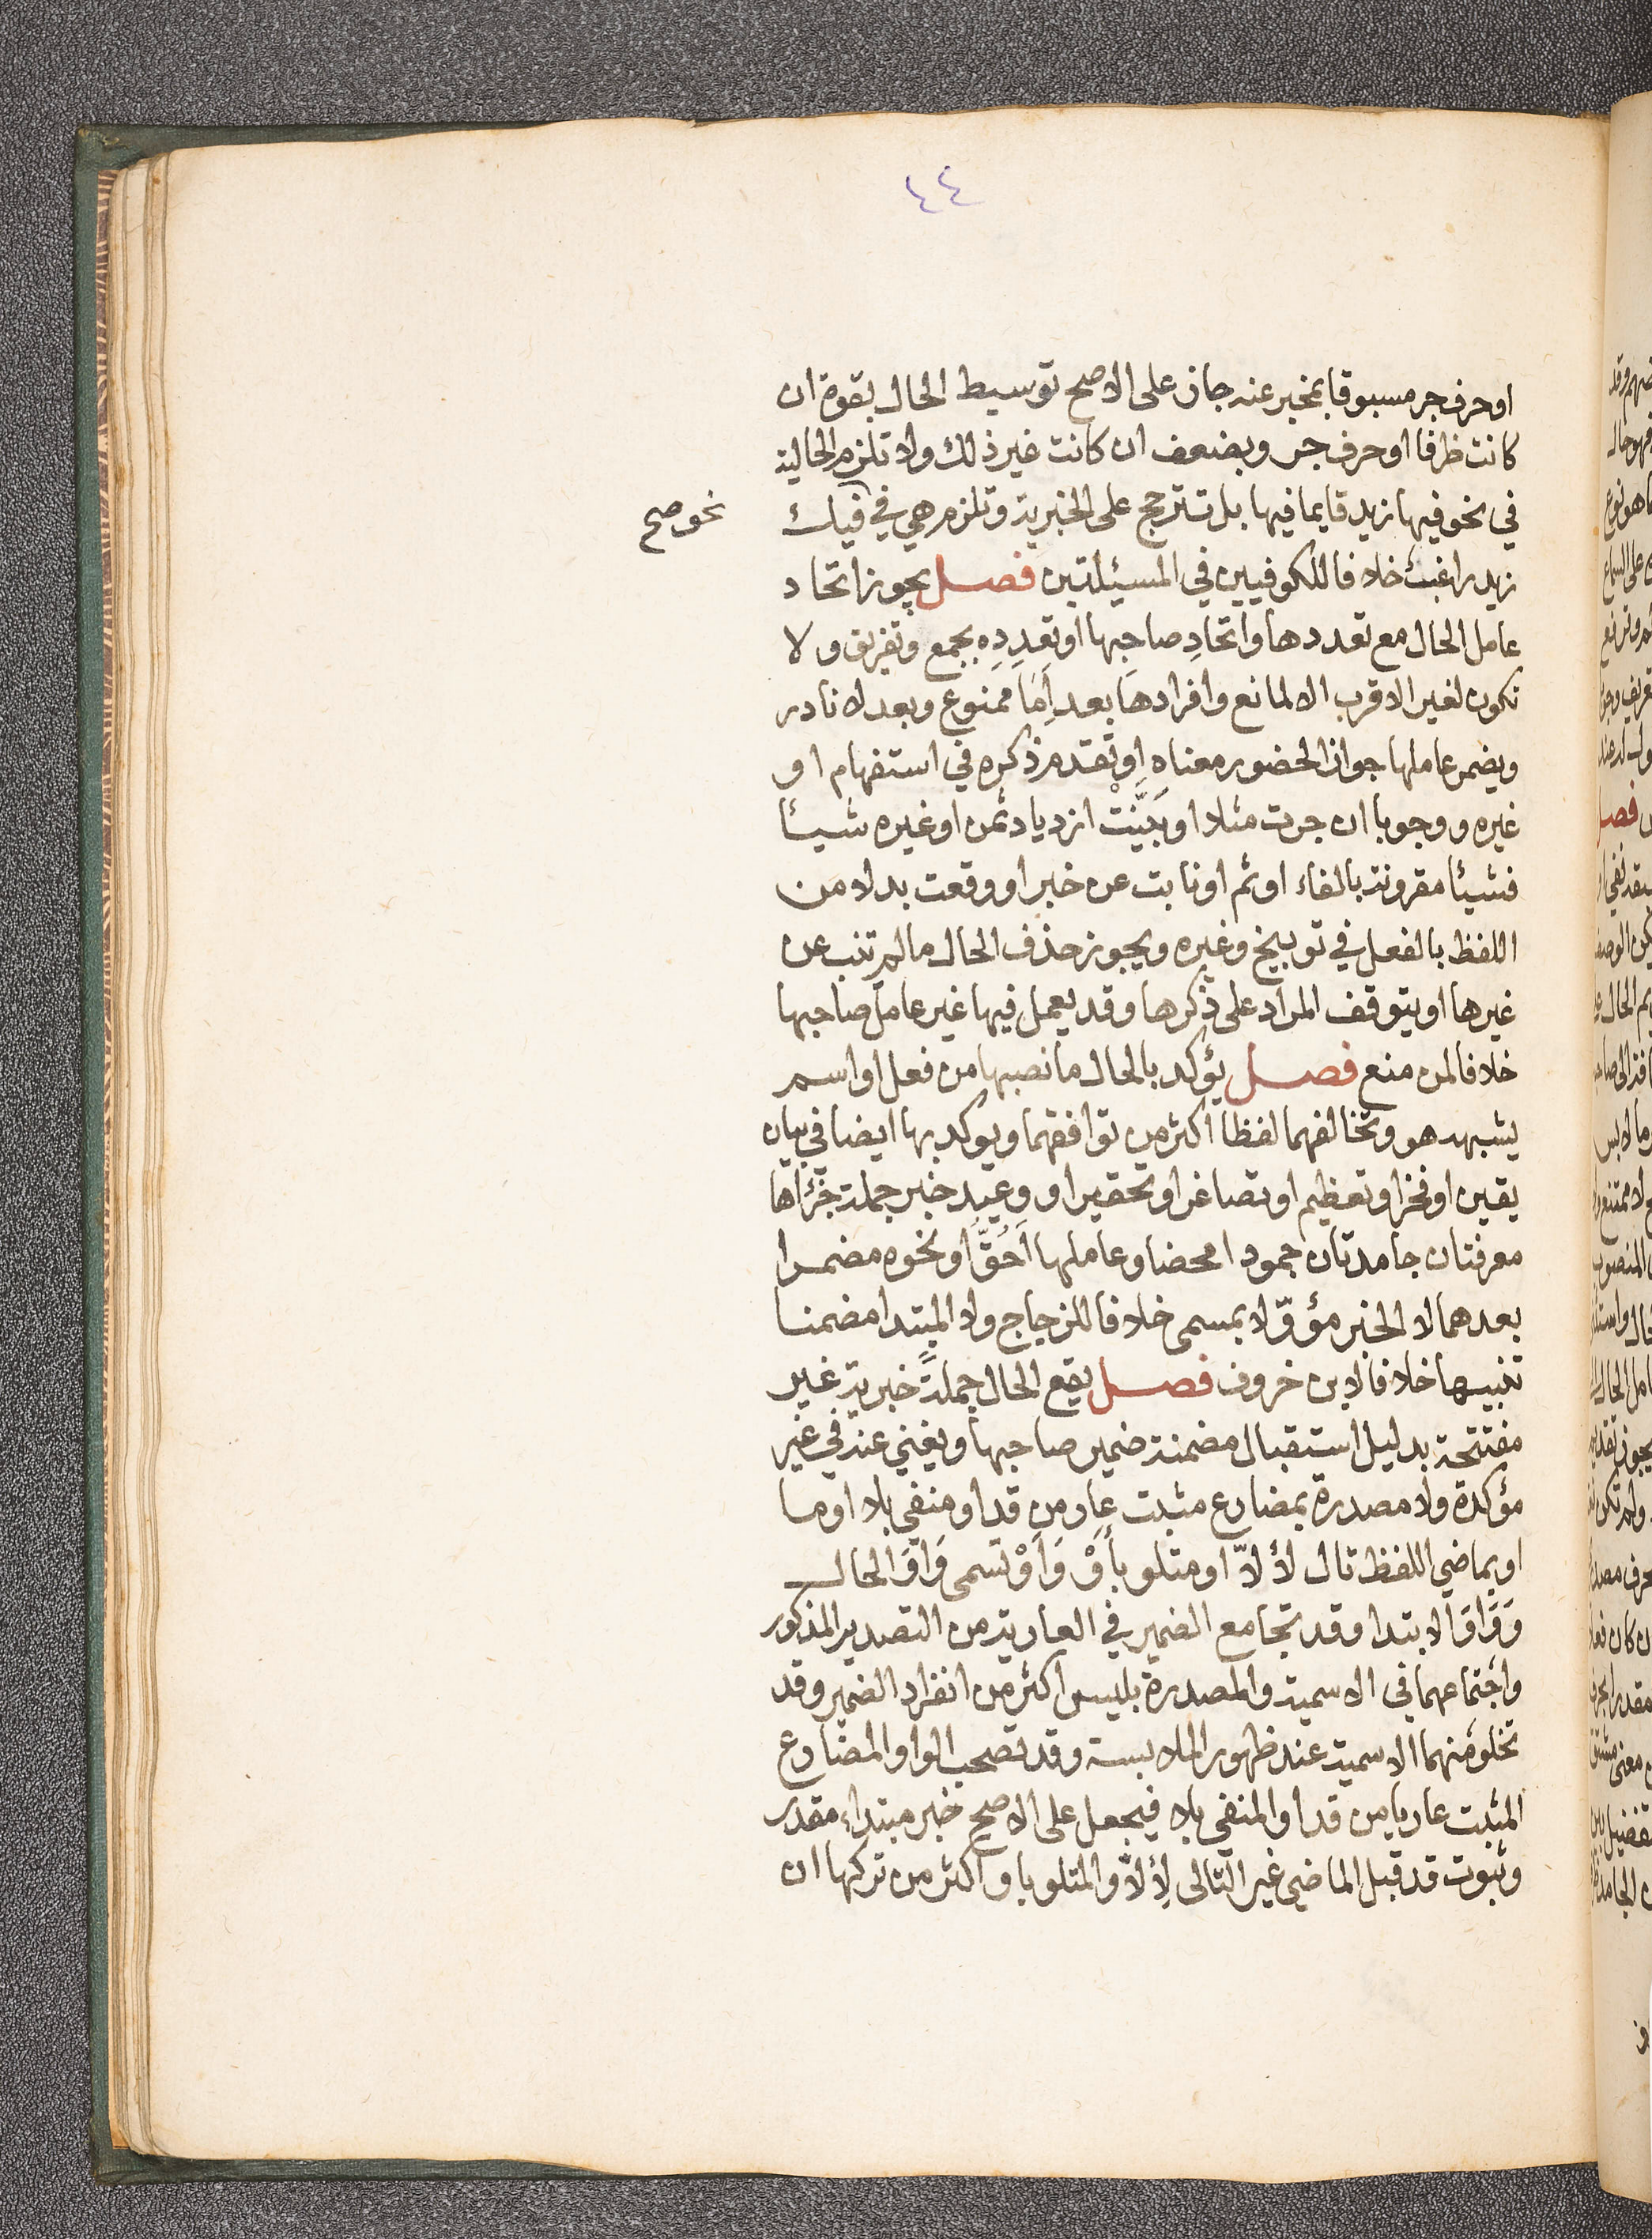 ٤٤
او حرف جر مسبوقا بمخبر عنه جاز على الاصح توسيط الحال بقوة ان
كانت ظرفا او حرف جر وبضعف ان كانت غير ذلك ولا تلزم الحالية
في نحو فيها زيد قايما فيها بل تترجح على الخبرية وتلزم هي في فيك
نحو صح
زيد راغب خلافا للكوفيين في المسئلتين فصل يجوز اتحاد
عامل الحال مع تعددها واتحادِ صاحبها او تعددِه بجمع وتفريق ولا
تكون لغير الاقرب الا لمانع وافرادها بعد اِمّا ممنوع وبعد لا نادر
ويضمر عاملها جوازا لحضور معناه او تقدم ذكره في استفهام او
غيره ووجوبا ان جرت مثلا او بَيَّنَتْ ازدياد ثمن او غيره شيئا
فشيئا مقرونة بالفاء او ثم او نابت عن خبر او وقعت بدلا من
اللفظ بالفعل في توبيخ وغيره ويجوز حذف الحال ما لم تنب عن
غيرها او يتوقف المراد على ذكرها وقد يعمل فيها غير عامل صاحبها
خلافا لمن منع فصل يؤكد بالحال ما نصبها من فعل او اسم
يشبهه هو وتخالفهما لفظا اكثر من توافقهما ويوكد بها ايضا في بيان
يقين او فخر او تعظيم او تصاغر او تحقير او وعيد خبر جملة جُزْاها
معرفتان جامدتان جمودا محضا وعاملها اَحُقُّ او نحوه مضمرا
بعدهما لا الخبر مؤوّلا بمسمى خلافا للزجاج ولا المبتدا مضمنا
تنبيها خلافا لابن خروف فصل يقع الحال جملةً خبرية غير
مفتتحة بدليل استقبال مضمنة ضمير صاحبها ويغني عنه في غير
مؤكدة ولا مصدرة بمضارع مثبت عارٍ من قد او منفي بلا او ما
او بماضي اللفظ تال لاِلاّ او متلو بأوْ وَاوٌ تسمى وَاوَ الحال
وَوَاوَ الابتدا وقد تجامع الضمير في العارية من التصدير المذكور
واجتماعهما في الاسمية والمصدرة بليس اكثر من انفراد الضمير وقد
تخلو منهما الاسمية عند ظهور الملابسة وقد تصحب الواو المضارع
المثبت عاريا من قد او المنفي بلا فيجعل على الاصح خبر مبتداء مقدر
وثبوت قد قبل الماضي غير التالى لاِلاّ والمتلو باو اكثر من تركها ان